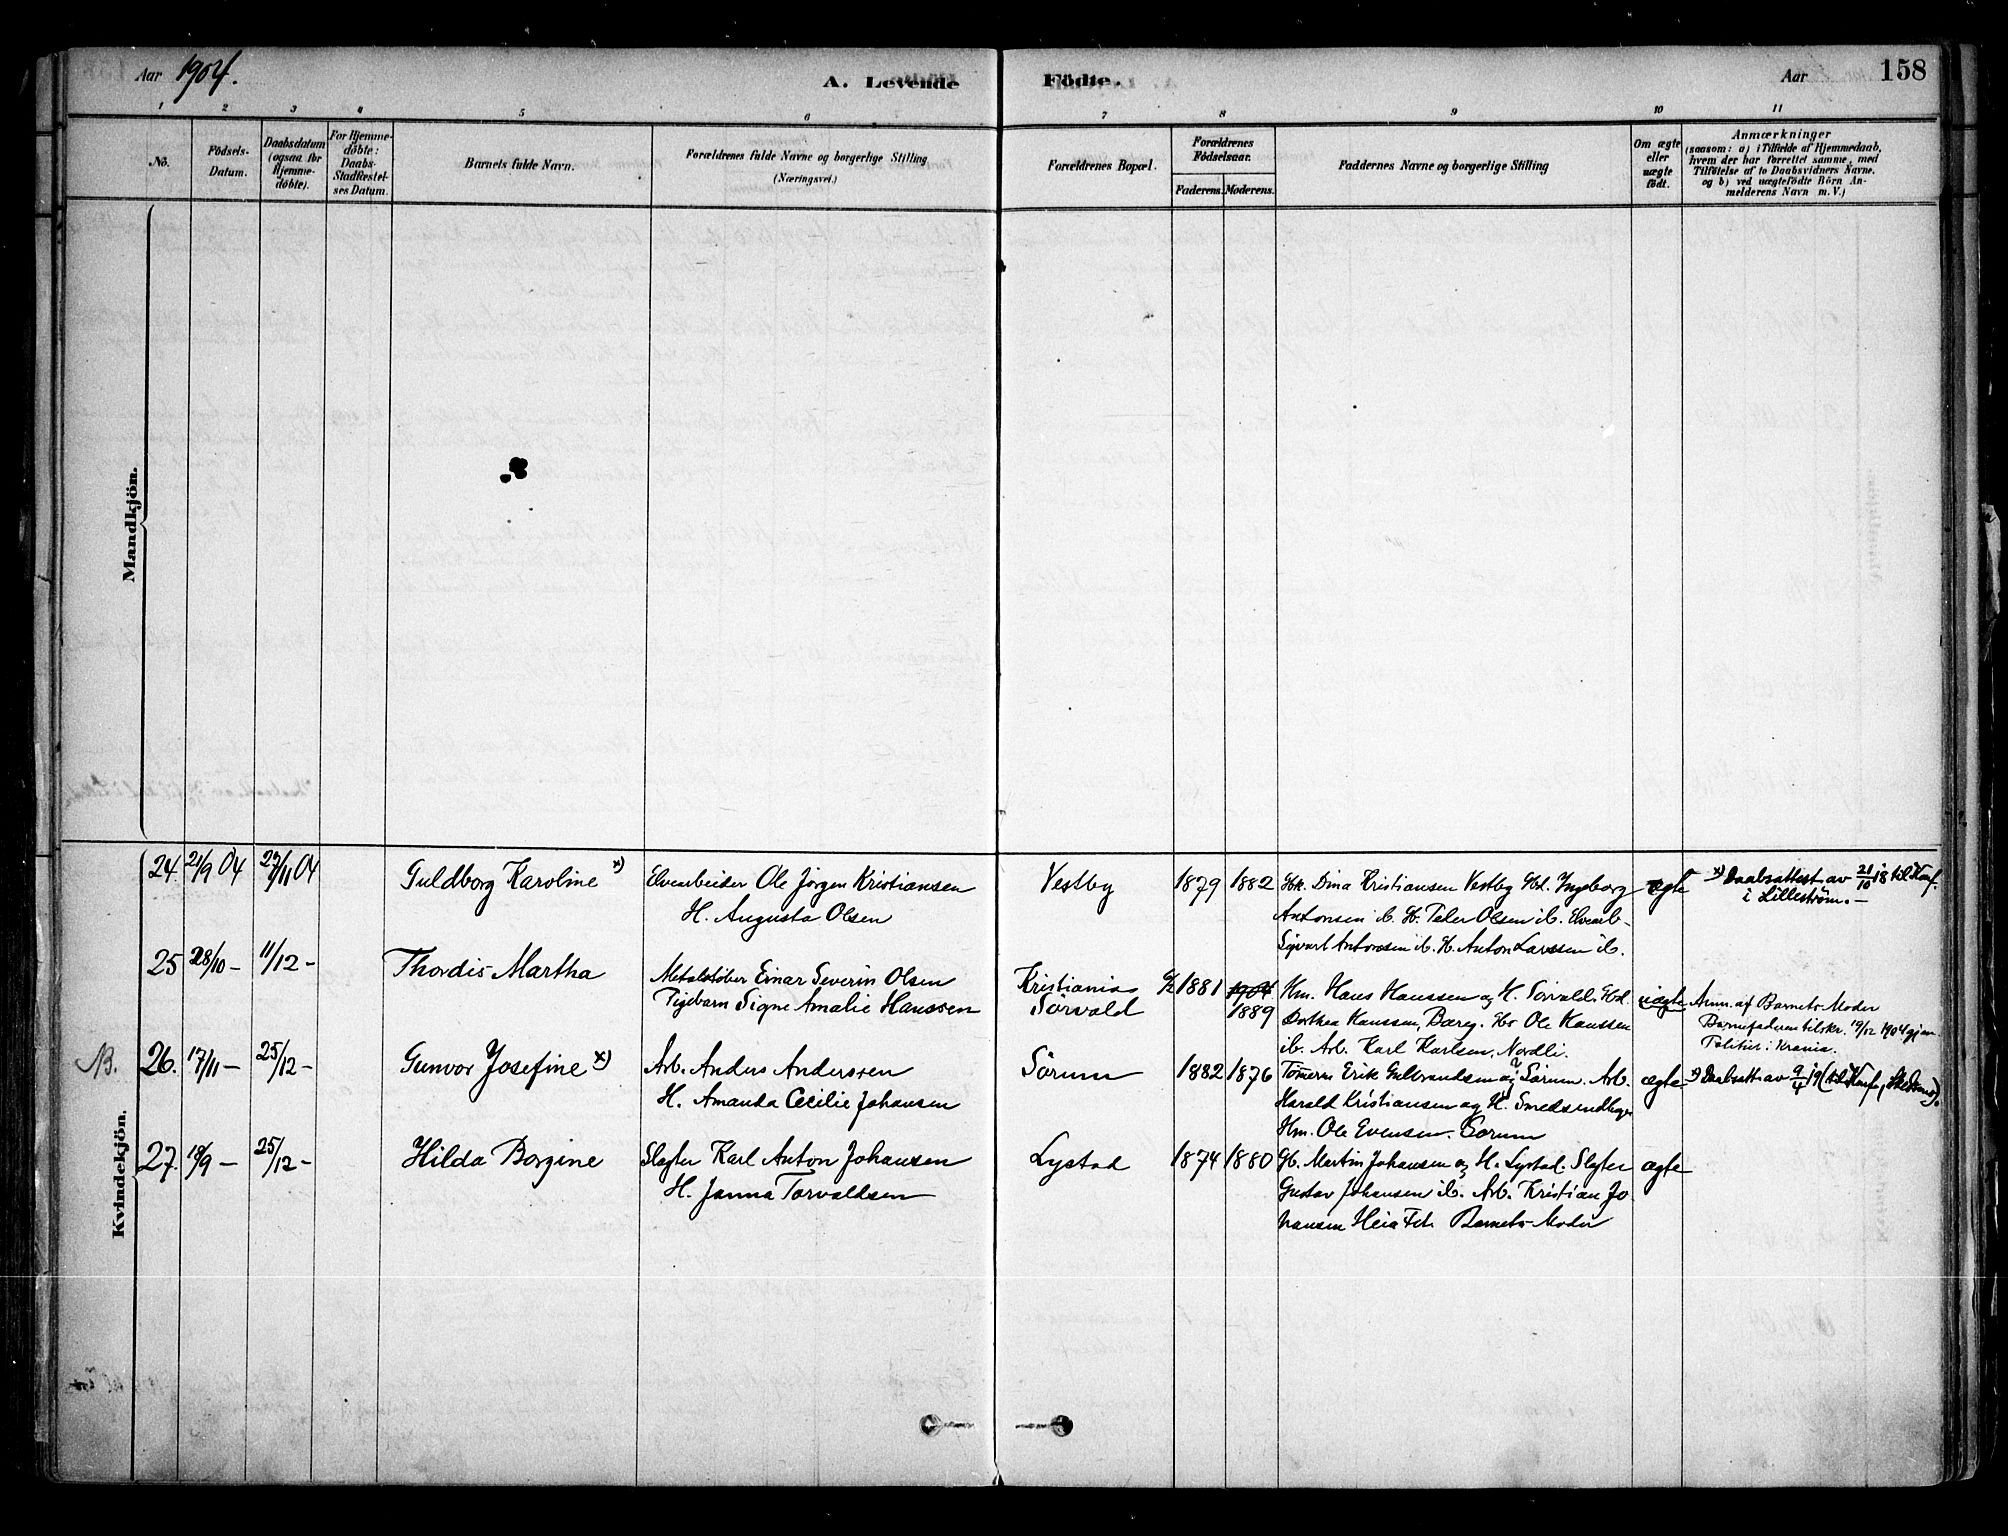 Aar 1904.
A. Levende Födte.
Aar 158
1 2 3 4 5 6 7 8 9 10 11
No.
Födsels-Datum.
Daabsdatum (ogsaa for Hjemmedöbte).
For Hjemmedöbte: Daabs-Stadfæstelses Datum.
Barnets fulde Navn.
Forældrenes fulde Navne og borgerlige Stilling (Næringsvei.)
Forældrenes Bopæl.
Forældrenes Födselsaar.
Faderens. Moderens.
Faddernes Navne og borgerlige Stilling
Om ægte eller uægte födt.
Anmærkninger
(saasom: a) i Tilfælde af Hjemmedaab,
hvem der har forrettet samme, med
Tilföielse af to Daabsvidners Navne,
og b) ved uægtefödte Börn An-
melderens Navn m. V.)
Mandkjön.
Kvindekjön.
24. 21/9 04 27/11 04 Guldborg Karoline x) Elvearbeider Ole Jörgen Kristiansen
H. Augusta Olsen
Vestby 1879 1882
Hk. Dina Kristiansen Vestby Gbd. Ingeborg
Antonsen ib. H. Peder Olsen ib. Elvearb-
Sigvart Antonsen ib. H. Anton Larssen ib.
ægte
x) Daabsattest av 21/10 18 til Konf.
i Lilleström. -
25 28/10 - 11/12 - Thordis Martha
Metalstöber Einar Severin Olsen
Pigebarn Signe Amalie Hanssen
Kristiania
Sörvald
1881 1904
1889
Hm. Hans Hanssen og H. Sörvald.
Dorthea Hanssen, Ole Hanssen
ib. Arb. Karl Karlsen, Nordli.
uægte
Anm. af Barnets Moder
Barnefaderen tilskr. 19/12 1904 gjen.
Politiet i Krania.
NB. 26. 17/11 - 25/12 - Gunvor Josefine x) Arb. Anders Anderssen
H. Amanda Cecilie Johansen
Sörum 1882 1876
Tömerm Erik Gulbrandsen og Sörum. Arb.
Harald Kristiansen og H. Smedsend
Hm. Ole Evensen. Sorum
ægte
x) Daabsatt av 9/4 19 (til Konf, Skedsmo).
27. 18/9 - 25/12 - Hilda Borgine
Slagter Karl Anton Johansen
H. Janna Torvaldsen
Lystad 1874 1880
Gb. Martin Johansen og H. Lystad. Slagter
Gustav Johansen ib. Arb. Kristian Jo
hansen Heia Fet. Barnets Moder
ægte